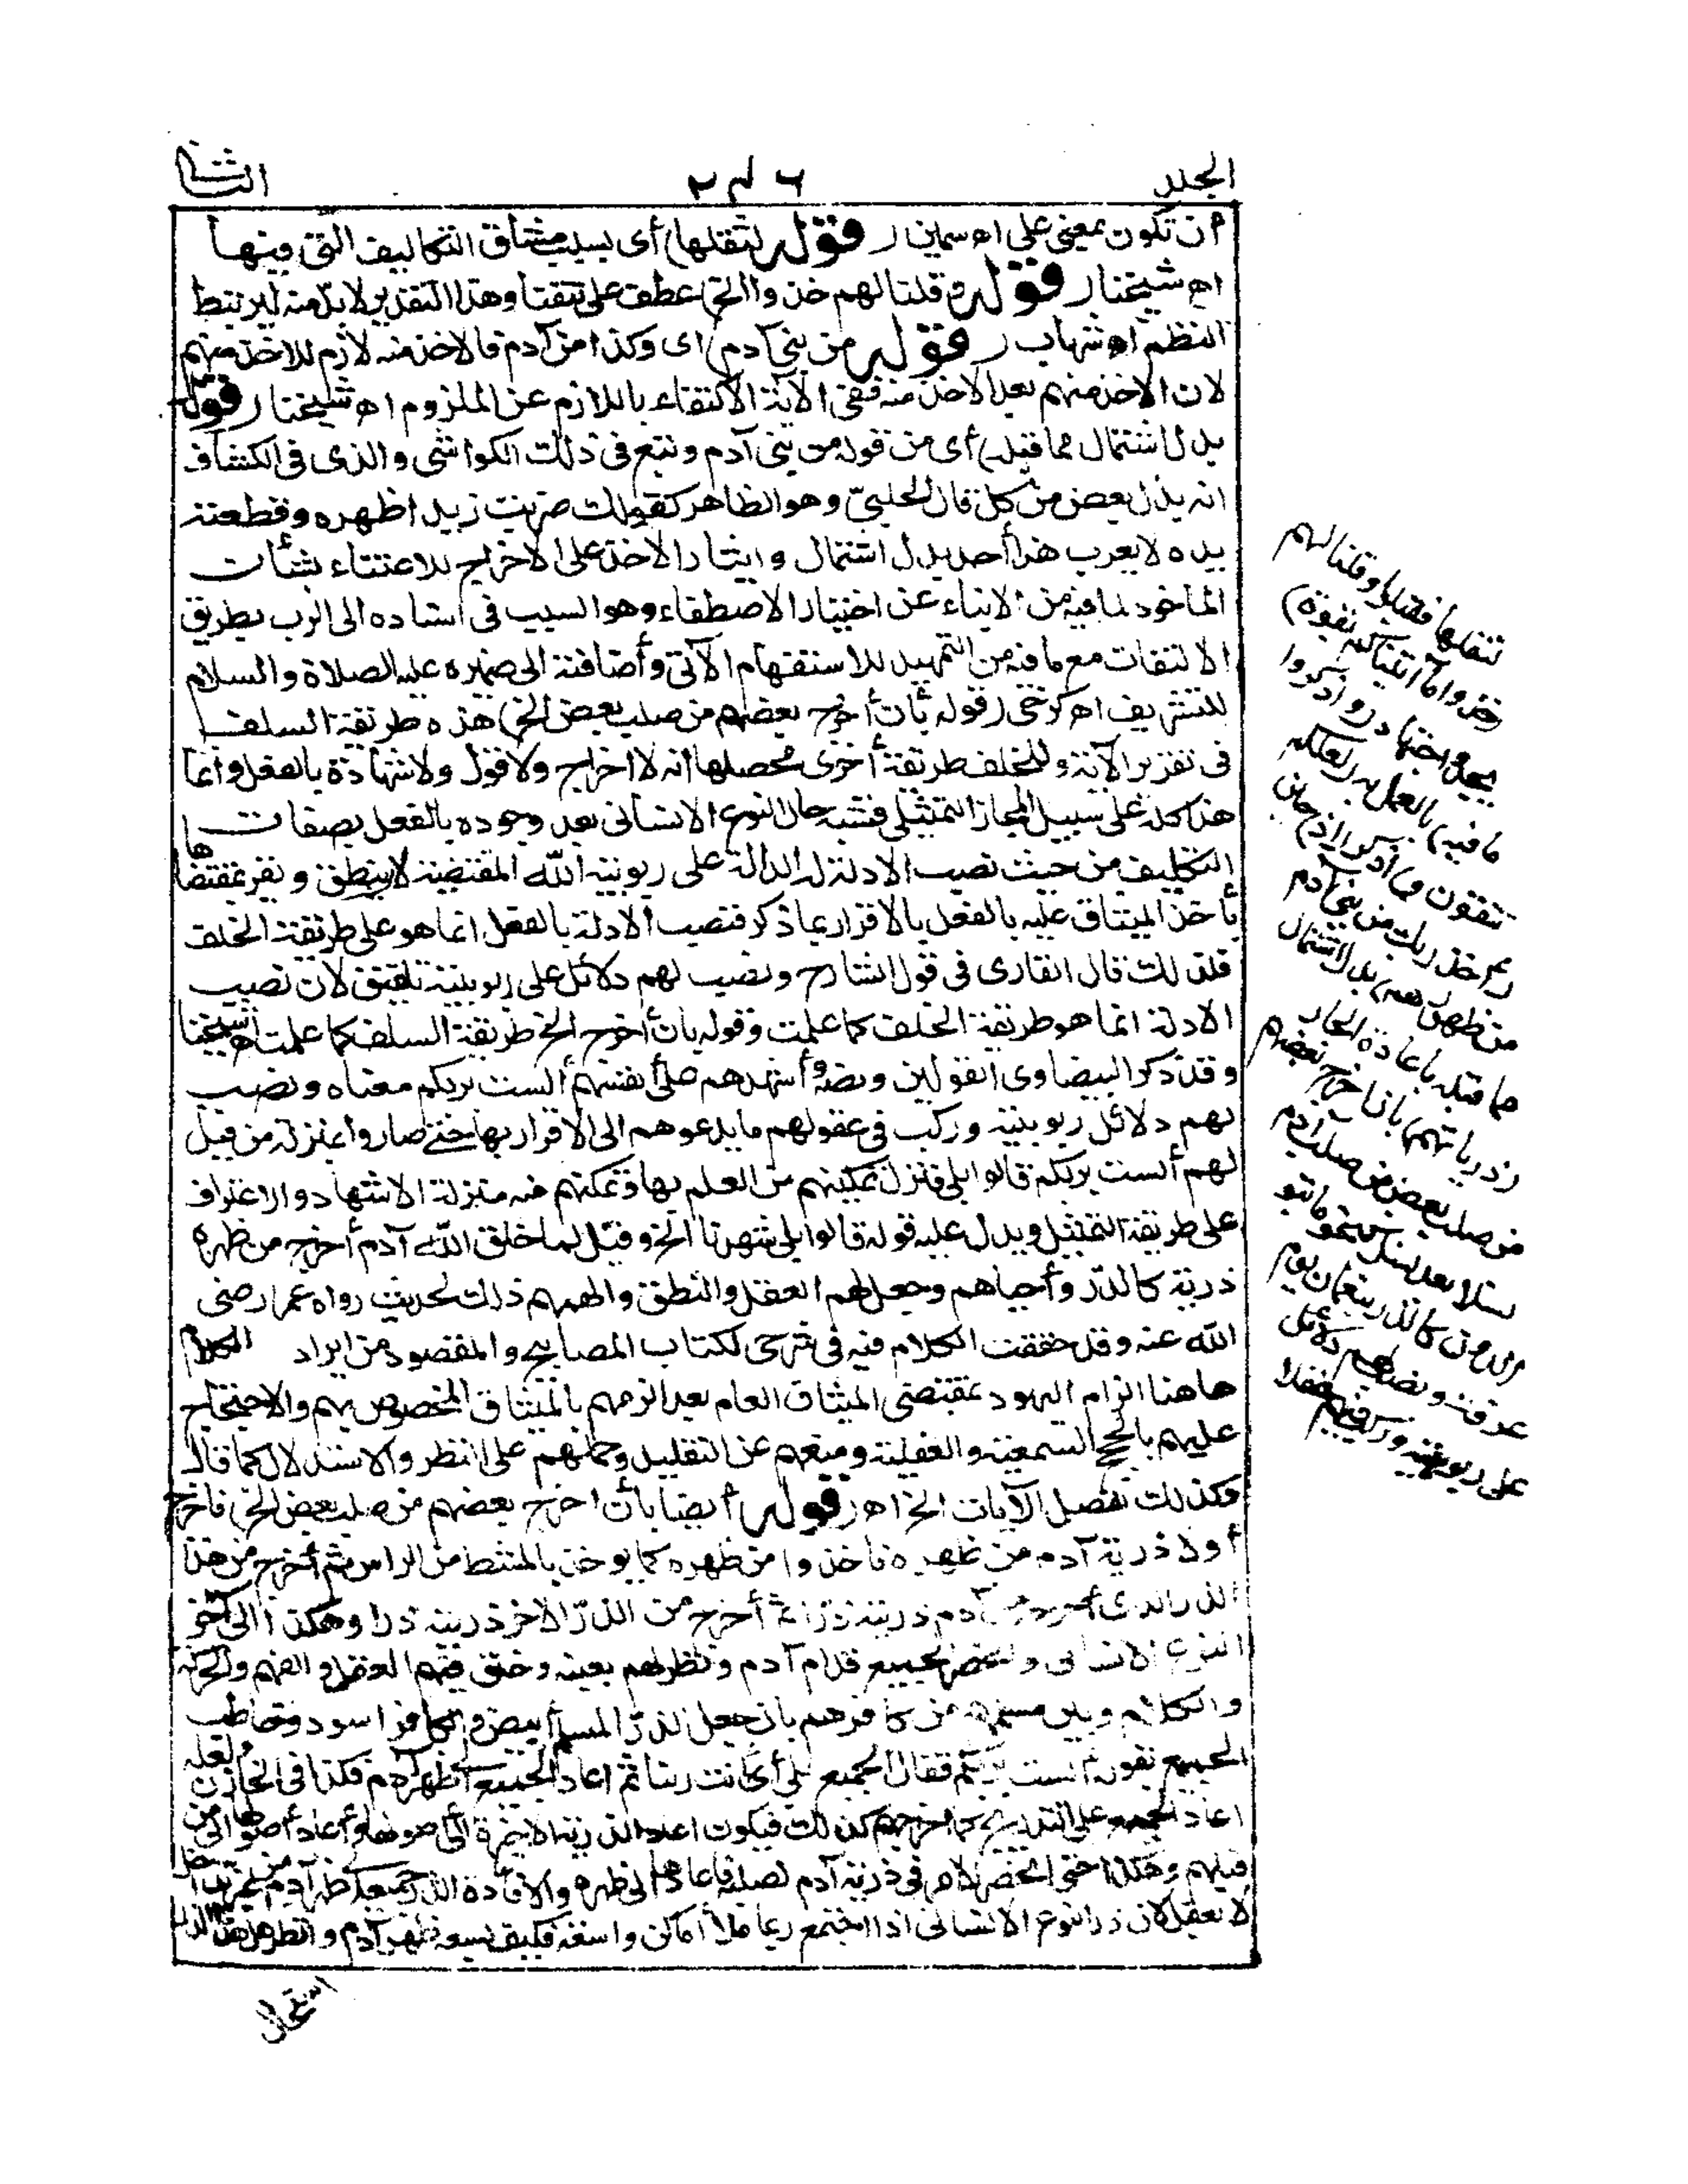 الجلد
٢٣٦
الثاني
أن تكون بمعنى على اه سمين ( قوله لثقلها) أى بسبب مشاق التكاليف التى فيها
اه شيخنا ( قوله وقلنا لهم خذوا الخ) عطف على نتقنا وهذا التقدير لا بد منه ليرتبط
النظم اه شهاب ( قوله من بنى آدم) اى وكذا من آدم فالاخذ منه لازم للاخذ منهم
لان الاخذ منهم بعد الاخذ منه ففى الآية الاكتفاء باللازم عن الملزوم اه شيخنا ( قوله
بدل اشتمال مما قبله) أى من قوله من بنى آدم وتبع فى ذلك الكواشى والذى فى الكشاف
انه بدل بعض من كل قال الحلبىّ وهو الظاهر كقولك ضربت زيدا ظهره وقطعته
يده لا يعرب هذا أحد بدل اشتمال وايثار الاخذ على الاخراج للاعتناء بشأن
المأخوذ لما فيه من الانباء عن اختيار الاصطفاء وهو السبب فى اسناده الى الرب بطريق
الالتفات مع ما فيه من التمهيد للاستفهام الآتى وأضافته الى ضميره عليه الصلاة والسلام
للتشريف اه كرخى ( قوله بأن أخرج بعضهم من صلب بعض الخ) هذه طريقة السلف
فى تفزير الآية وللخلف طريقة أخرى محصلها أنه لا اخراج ولا قول ولا شهادة بالفعل وأنما
هذا كله على سبيل المجاز التمثيلى فشبه حال النوع الانسانى بعد وجوده بالفعل بصفات
التكليف من حيث نصب الادلة له الدالة على ربوبية الله المقتضية لان ينطق ويقر بمقتضاها
بأخذ الميثاق عليه بالفعل بالاقرار بما ذكر فنصب الادلة بالفعل انما هو على طريقة الخلف
فلذلك قال القارى فى قول الشارح ونصب لهم دلائل على ربوبيته تلفيق لان نصب
الادلة انما هو طريقة الخلف كما علمت وقوله بان أخرج الخ طريقة السلف كما علمت اه شيخنا
وقد ذكر البيضاوى القولين ونصه وأشهدهم على أنفسهم ألست بربكم معناه ونصب
لهم دلائل ربوبيته وركب فى عقولهم ما يدعوهم الى الاقرار بها حتى صاروا بمنزلة من قيل
لهم ألست بربكم قالوا بلى فنزل تمكينهم من العلم بها وتمكنهم منه منزلة الاشهاد والاعتراف
على طريقة التمثيل ويدل عليه قوله قالوا بلى شهدنا الخ وقيل لما خلق الله آدم أخرج من ظهره
ذرية كالذر وأحياهم وجعل لهم العقل والنطق والهمهم ذلك لحديث رواه عمر رضى
الله عنه وقد حققت الكلام فيه فى شرحى لكتاب المصابيح والمقصود من ايراد الكلام
هاهنا الزام اليهود بمقتضى الميثاق العام بعد الزمهم بالميثاق المخصوص بهم والاحتجاج
عليهم بالحجج السمعية والعقلية ومنعهم عن التقليد وحملهم على النظر والاستدلال كما قال
وكذلك نفصل الآيات الخ اه ( قوله أيضا بأن اخرج بعضهم من صلب بعض الخ) فاخرج
أولا ذرية آدم من ظهره فاخذوا من ظهره كما يوخذ بالمشط من الراس ثم أخرج من هذا
الذر الذى أخرجه من آدم ذريته ذرّا ثم أخرج من الذرّ الاخر ذريته ذرا وهكذا الى آخر
النوع الانسانى وانحصر الجميع قدام آدم ونظر لهم بعينه وخلق فيهم العقل والفهم والحركة
والكلام وبين مسلمهم من كافرهم بان جعل الذرّ المسلم أبيض والكافر اسود وخاطب
الجميع بقوله ألست بربكم فقال الجميع بلى أى أنت ربنا ثم اعاد الجميع الى ظهر آدم فكذا فى الخازن ولعله
اعاد الجميع على التدريج كما اخرجهم كذلك فيكون اعاد الذرية الاخيرة الى أصولها وأعاد أصولها الى من
قبلهم وهكذا حتى انحصر الامر فى ذرية آدم لصلبه فاعادها الى ظهره والا فاعادة الذر جميعه لظهر آدم
لا يعقل لان ذر النوع الانسانى اذا اجتمع ربما ملأ أماكن واسعة فكيف يسعه ظهر آدم وانظر هل هذا الذر
استحال
لثقلها فقبلوا وقلنا لهم
(خذوا ما آتيناكم بقوة)
بجد واجتهاد (واذكروا
ما فيه) بالعمل به (لعلكم
تتقون و) اذكر (اذ) حين
(أخذ ربك من بنى آدم
من ظهورهم) بدل اشتمال
مما قبله باعادة الجار
(ذرياتهم) بان اخرج بعضهم
من صلب بعض من صلب آدم
نسلا بعد نسل كنحو ما يتو
الدون كالذر بنعمان يوم
عرفة ونصب لهم دلائل
على ربوبيته وركب فيهم عقلا